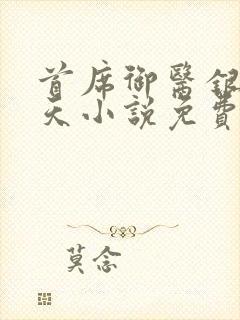 首席御醫銀
天小說免費
莫念